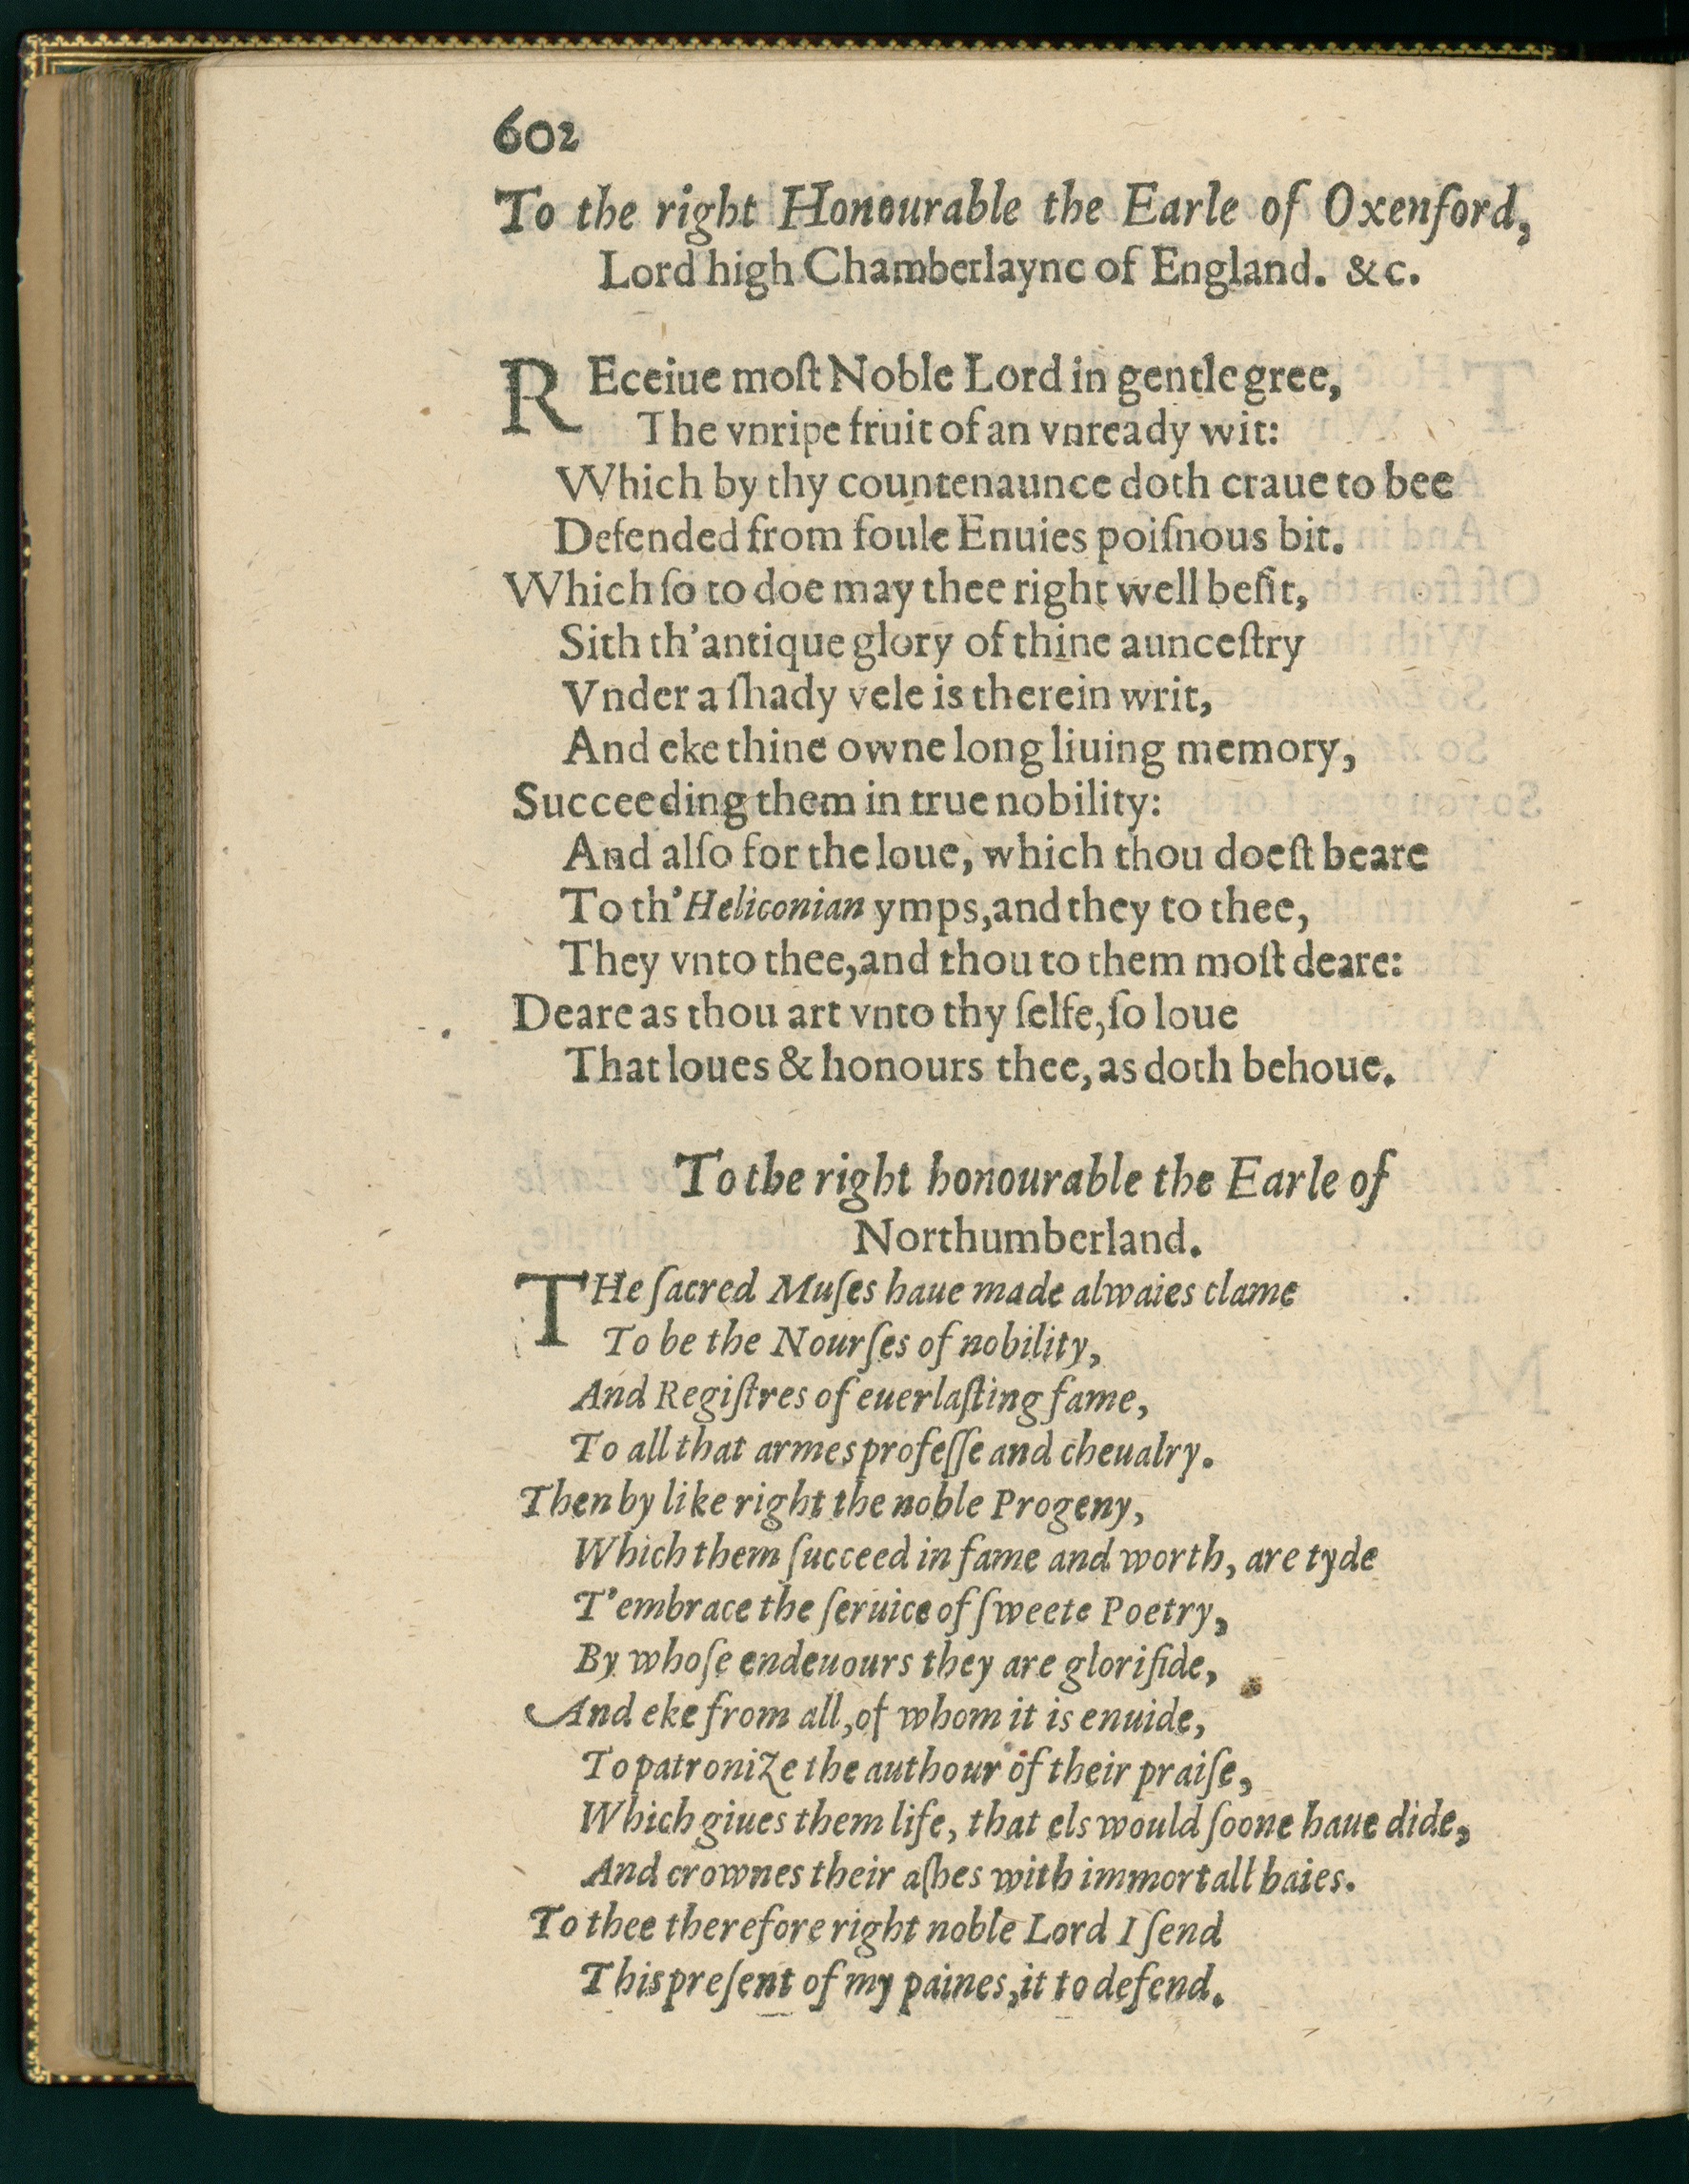 602
To the right Honourable the Earle of Oxenford,
Lord high Chamberlayne of England. &c.
REceiue moſt Noble Lord in gentle gree,
The vnripe fruit of an vnready wit:
Which by thy countenaunce doth craue to bee
Defended from foule Enuies poiſnous bit.
Which ſo to doe may thee right well beſit,
Sith th'antique glory of thine aunceſtry
Vnder a ſhady vele is therein writ,
And eke thine owne long liuing memory,
Succeeding them in true nobility:
And alſo for the loue, which thou doeſt beare
To th'Heliconian ymps, and they to thee,
They vnto thee, and thou to them moſt deare:
Deare as thou art vnto thy ſelfe, ſo loue
That loues & honours thee, as doth behoue.
To the right honourable the Earle of
Northumberland.
THe ſacred Muſes haue made alwaies clame
To be the Nourſes of nobility,
And Regiſtres of euerlaſting fame,
To all that armes profeſſe and cheualry.
Then by like right the noble Progeny,
Which them ſucceed in fame and worth, are tyde
T'embrace the ſeruice of ſweete Poetry,
By whoſe endeuours they are glorifide,
And eke from all, of whom it is enuide,
To patronize the authour of their praiſe,
Which giues them life, that els would ſoone haue dide,
And crownes their aſhes with immortall baies.
To thee therefore right noble Lord I ſend
This preſent of my paines, it to defend.